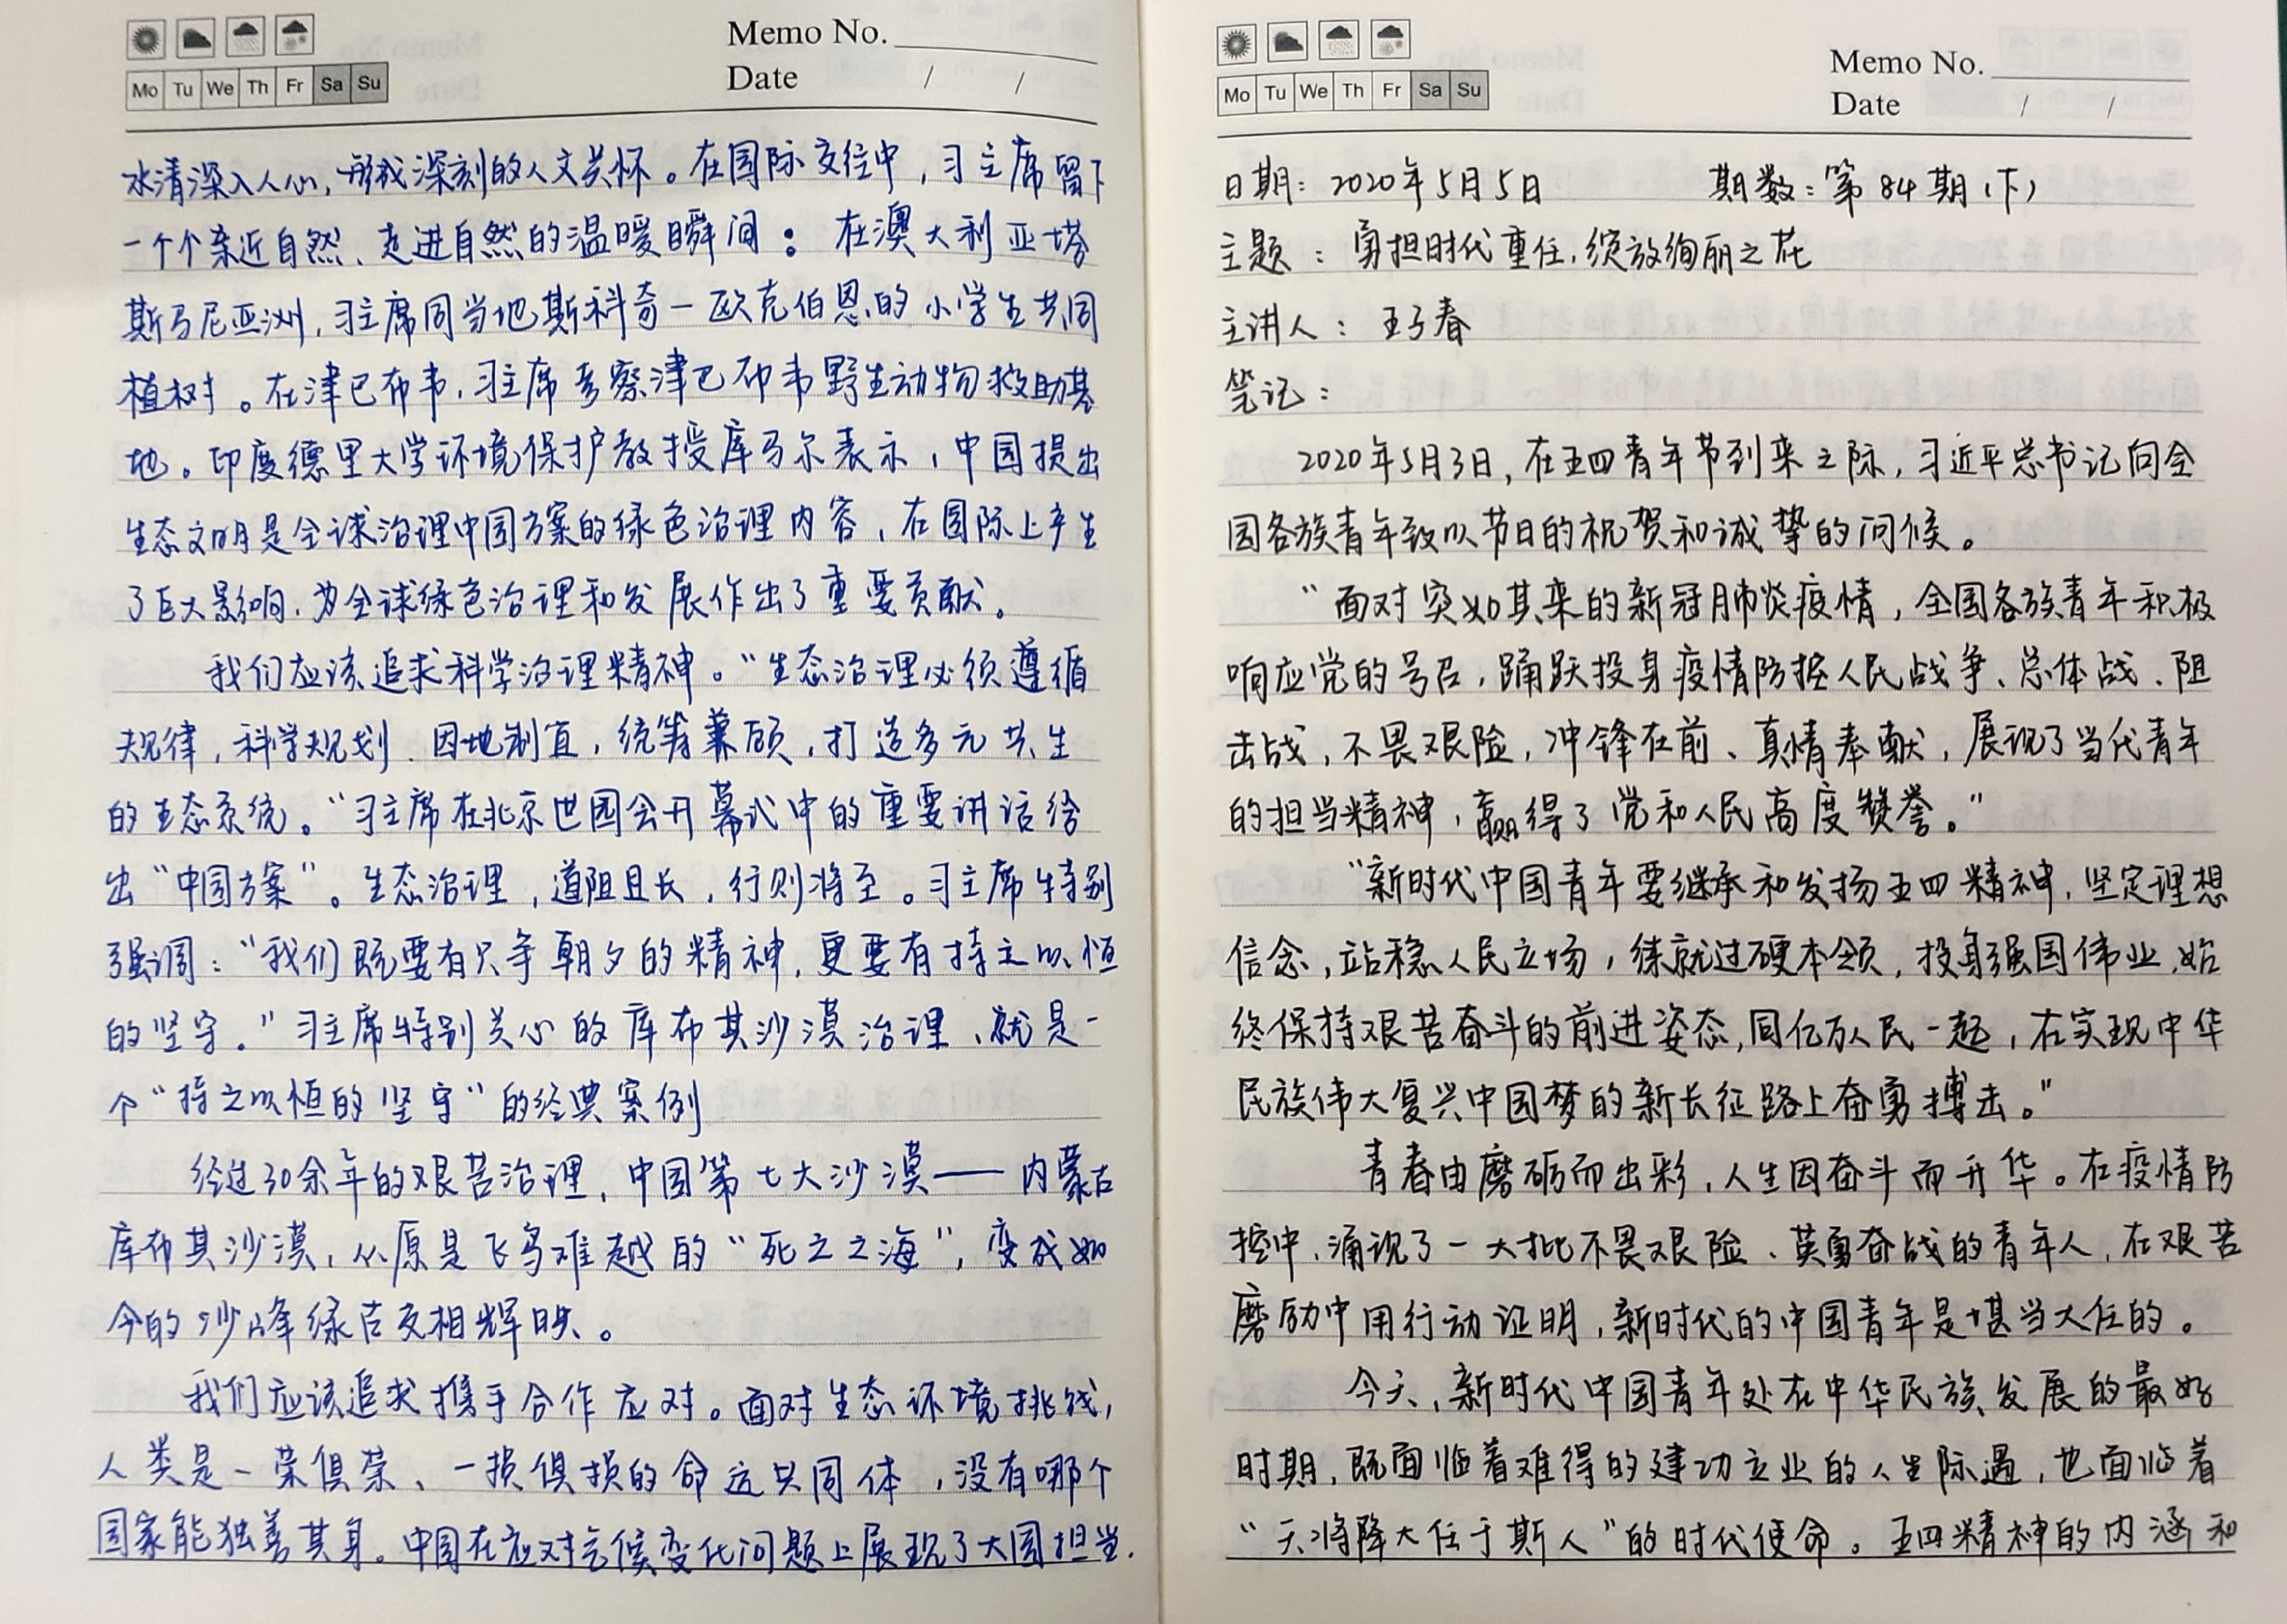 Memo No.
Mo Tu We Th Fr Sa Su
Date / /
水清深入人心,形成深刻的人文关怀。在国际交往中,习主席留下
一个个亲近自然、走进自然的温暖瞬间:在澳大利亚塔
斯马尼亚洲,习主席同当地斯科奇一欧克伯恩的小学生共同
植树。在津巴布韦,习主席考察津巴布韦野生动物救助基
地。印度德里大学环境保护教授库马尔表示,中国提出
生态文明是全球治理中国方案的绿色治理内容,在国际上产生
了巨大影响,为全球绿色治理和发展作出了重要贡献。
我们应该追求科学治理精神。“生态治理必须遵循
规律,科学规划、因地制宜,统筹兼顾,打造多元共生
的生态系统。“习主席在北京世园会开幕式中的重要讲话给
出“中国方案”。生态治理,道阻且长,行则将至。习主席特别
强调:“我们既要有只争朝夕的精神,更要有持之以恒
的坚守。”习主席特别关心的库布其沙漠治理、就是一
个“持之以恒的坚守”的经典案例
经过30余年的艰苦治理,中国第七大沙漠——内蒙古
库布其沙漠,从原是飞鸟难越的“死之之海”,变成如
今的沙峰绿洁交相辉映。
我们应该追求携手合作应对。面对生态环境挑战,
人类是一荣俱荣、一损俱损的命运共同体,没有哪个
国家能独善其身。中国在应对气候变化问题上展现了大国担当.
Memo No.
Mo Tu We Th Fr Sa Su
Date / /
日期:2020年5月5日 期数:第84期(下)
主题:勇担时代重任,绽放绚丽之花
主讲人:王子春
笔记:
2020年5月3日,在五四青年节到来之际,习近平总书记向全
国各族青年致以节日的祝贺和诚挚的问候。
“面对突如其来的新冠肺炎疫情,全国各族青年积极
响应党的号召,踊跃投身疫情防控人民战争、总体战、阻
击战,不畏艰险,冲锋在前、真情奉献,展现了当代青年
的担当精神,赢得了党和人民高度赞誉。”
“新时代中国青年要继承和发扬五四精神,坚定理想
信念,站稳人民立场,练就过硬本领,投身强国伟业,始
终保持艰苦奋斗的前进姿态,同亿万人民一起,在实现中华
民族伟大复兴中国梦的新长征路上奋勇搏击。”
青春由磨砺而出彩,人生因奋斗而升华。在疫情防
控中,涌现了一大批不畏艰险、英勇奋战的青年人,在艰苦
磨励中用行动证明,新时代的中国青年是堪当大任的。
今天,新时代中国青年处在中华民族发展的最好
时期,既面临着难得的建功立业的人生际遇,也面临着
“天将降大任于斯人”的时代使命。五四精神的内涵和